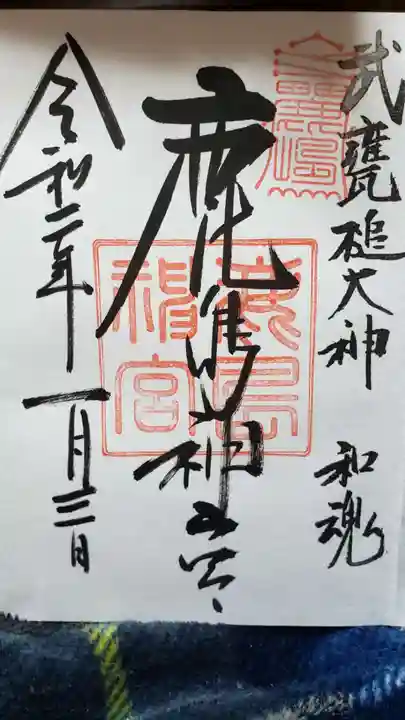 武甕槌大神 和魂
鹿島神宮
鹿島神宮
令和二年 一月三日